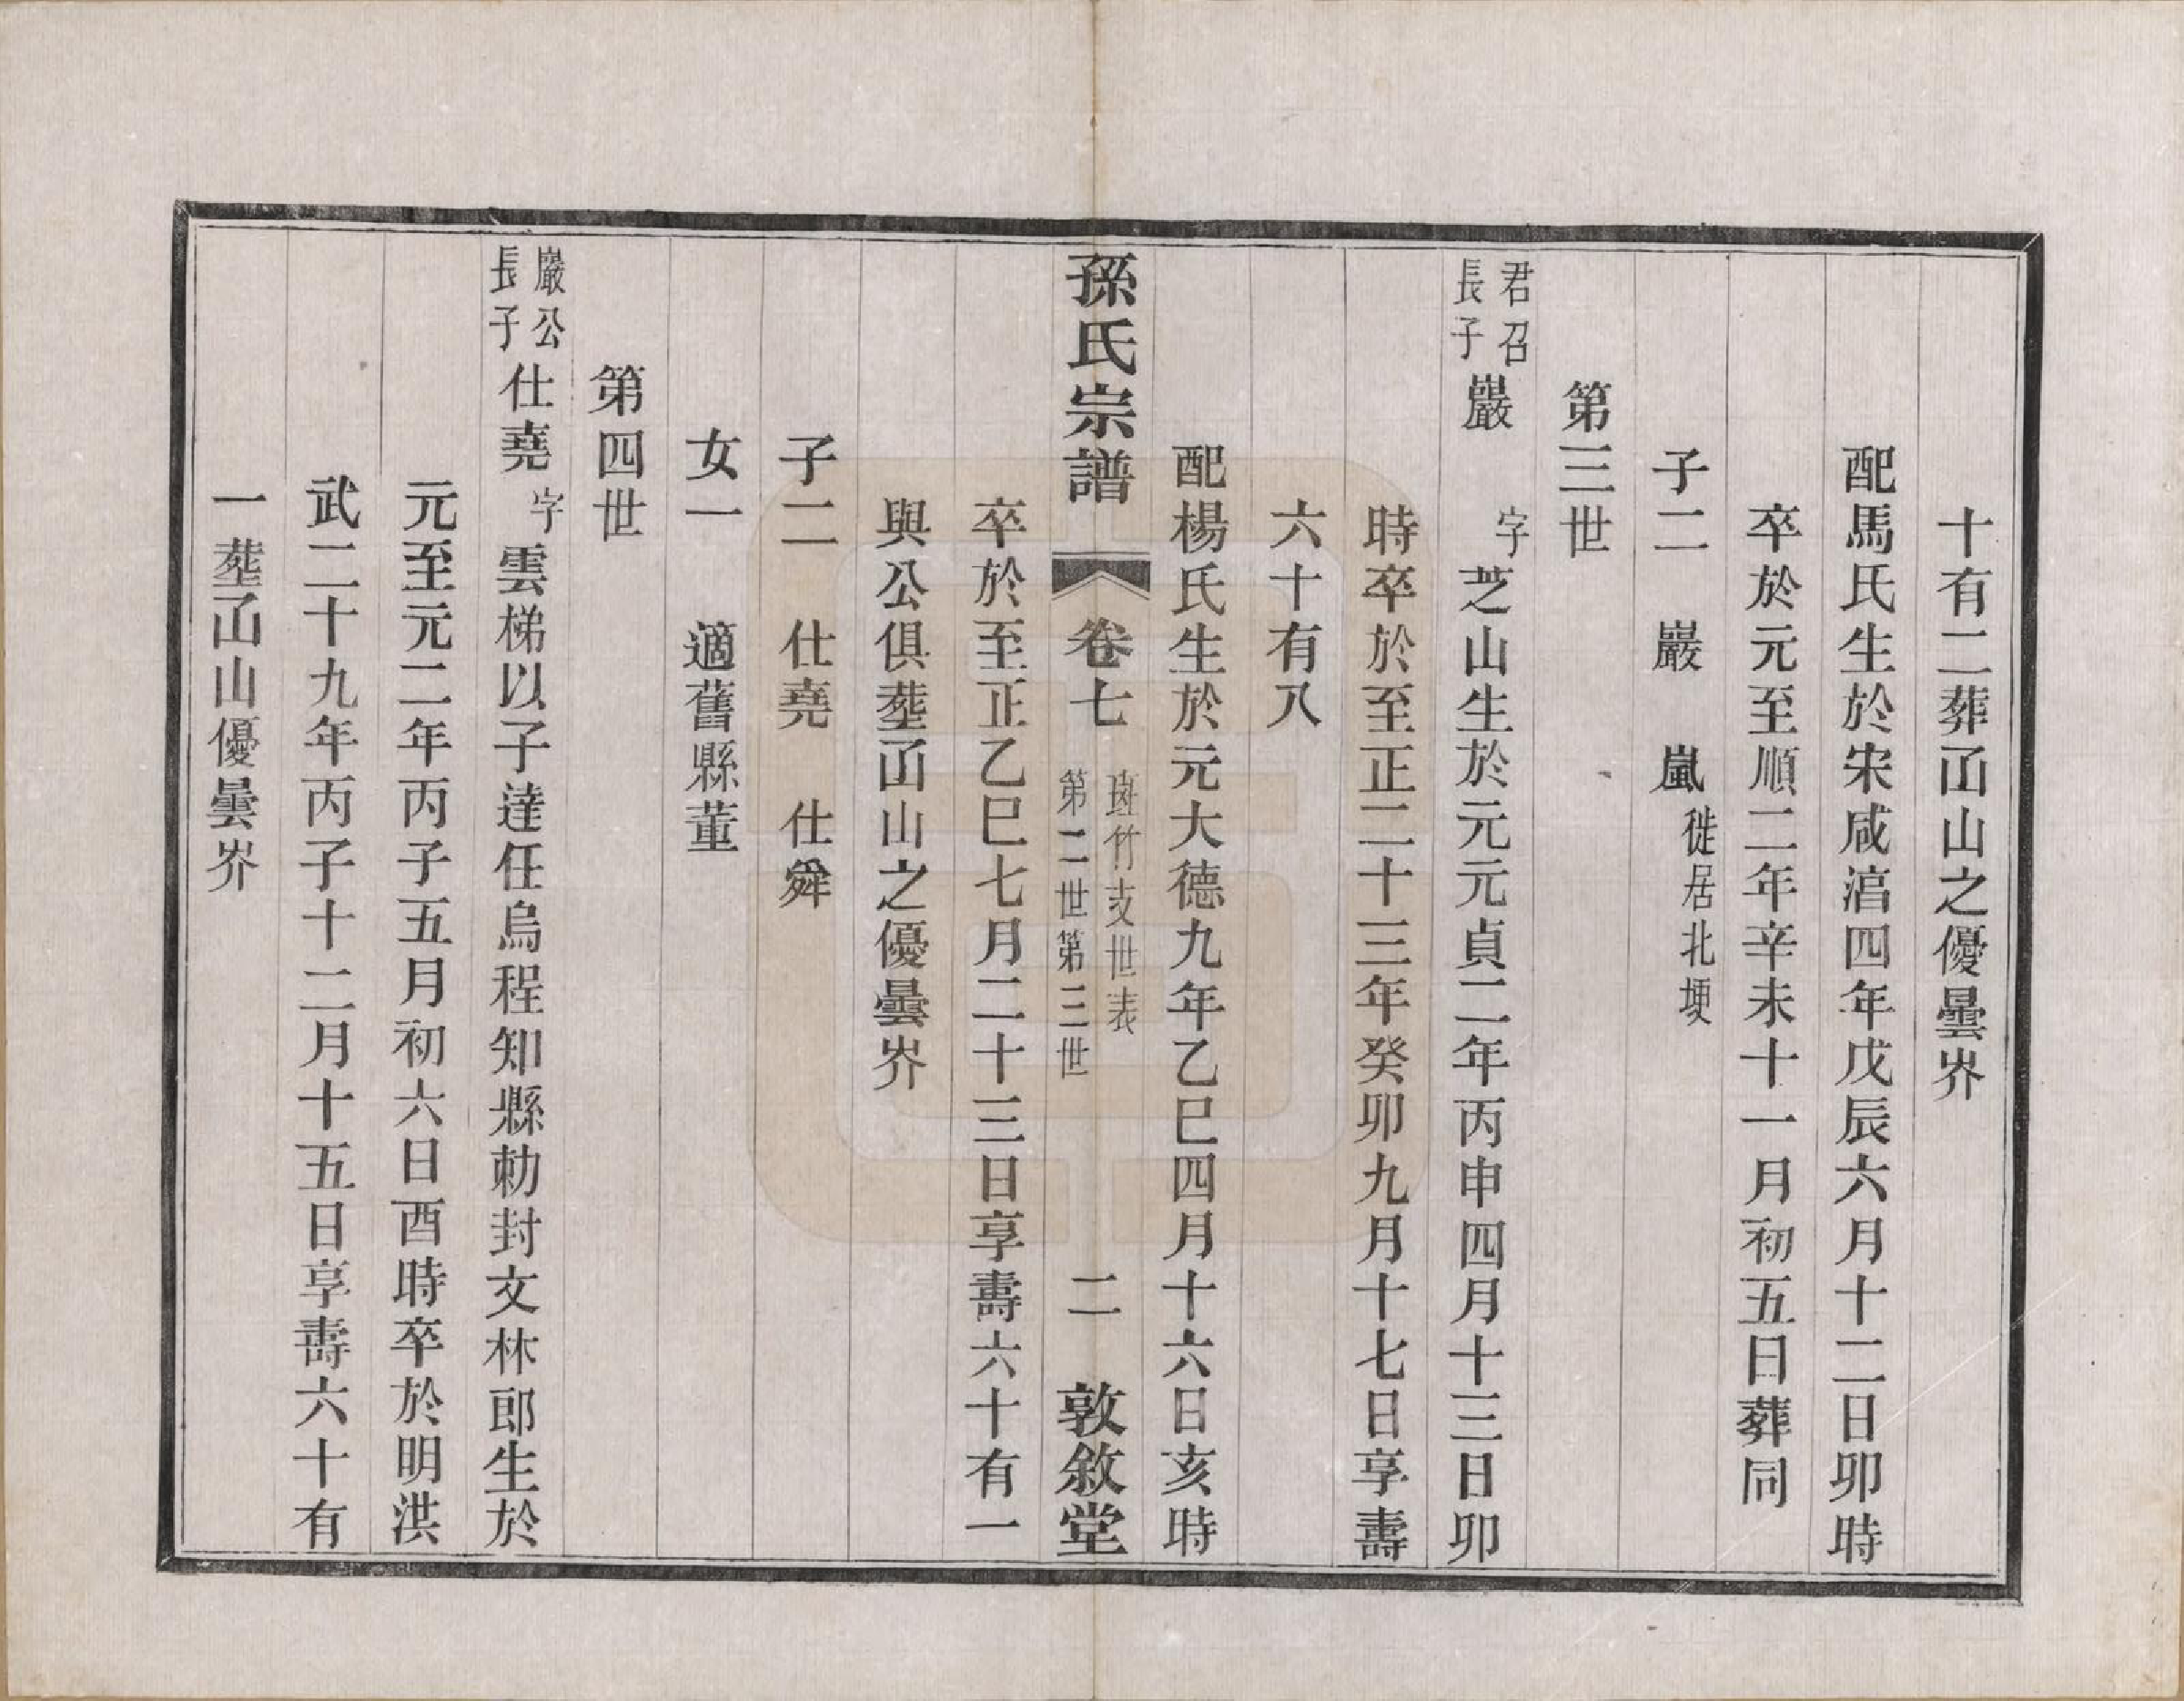 十有二葬凸山之優曇岕
配馬氏生於宋咸湻四年戊辰六月十二日卯時
卒於元至順二年辛未十一月初五日葬同
子二　巖　嵐徙居北埂
第三世
君召長子巖　字芝山生於元元貞二年丙申四月十三日卯
時卒於至正二十三年癸卯九月十七日享壽
六十有八
配楊氏生於元大德九年乙巳四月十六日亥時
孫氏宗譜　卷七　斑竹支世表　第二世第三世　二　敦敘堂
卒於至正乙巳七月二十三日享壽六十有一
與公俱塟凸山之優曇岕
子二　仕堯　仕舜
女一　適舊縣董
第四世
巖公長子仕堯字雲梯以子達任烏程知縣勅封文林郎生於
元至元二年丙子五月初六日酉時卒於明洪
武二十九年丙子十二月十五日享壽六十有
一塟凸山優曇岕